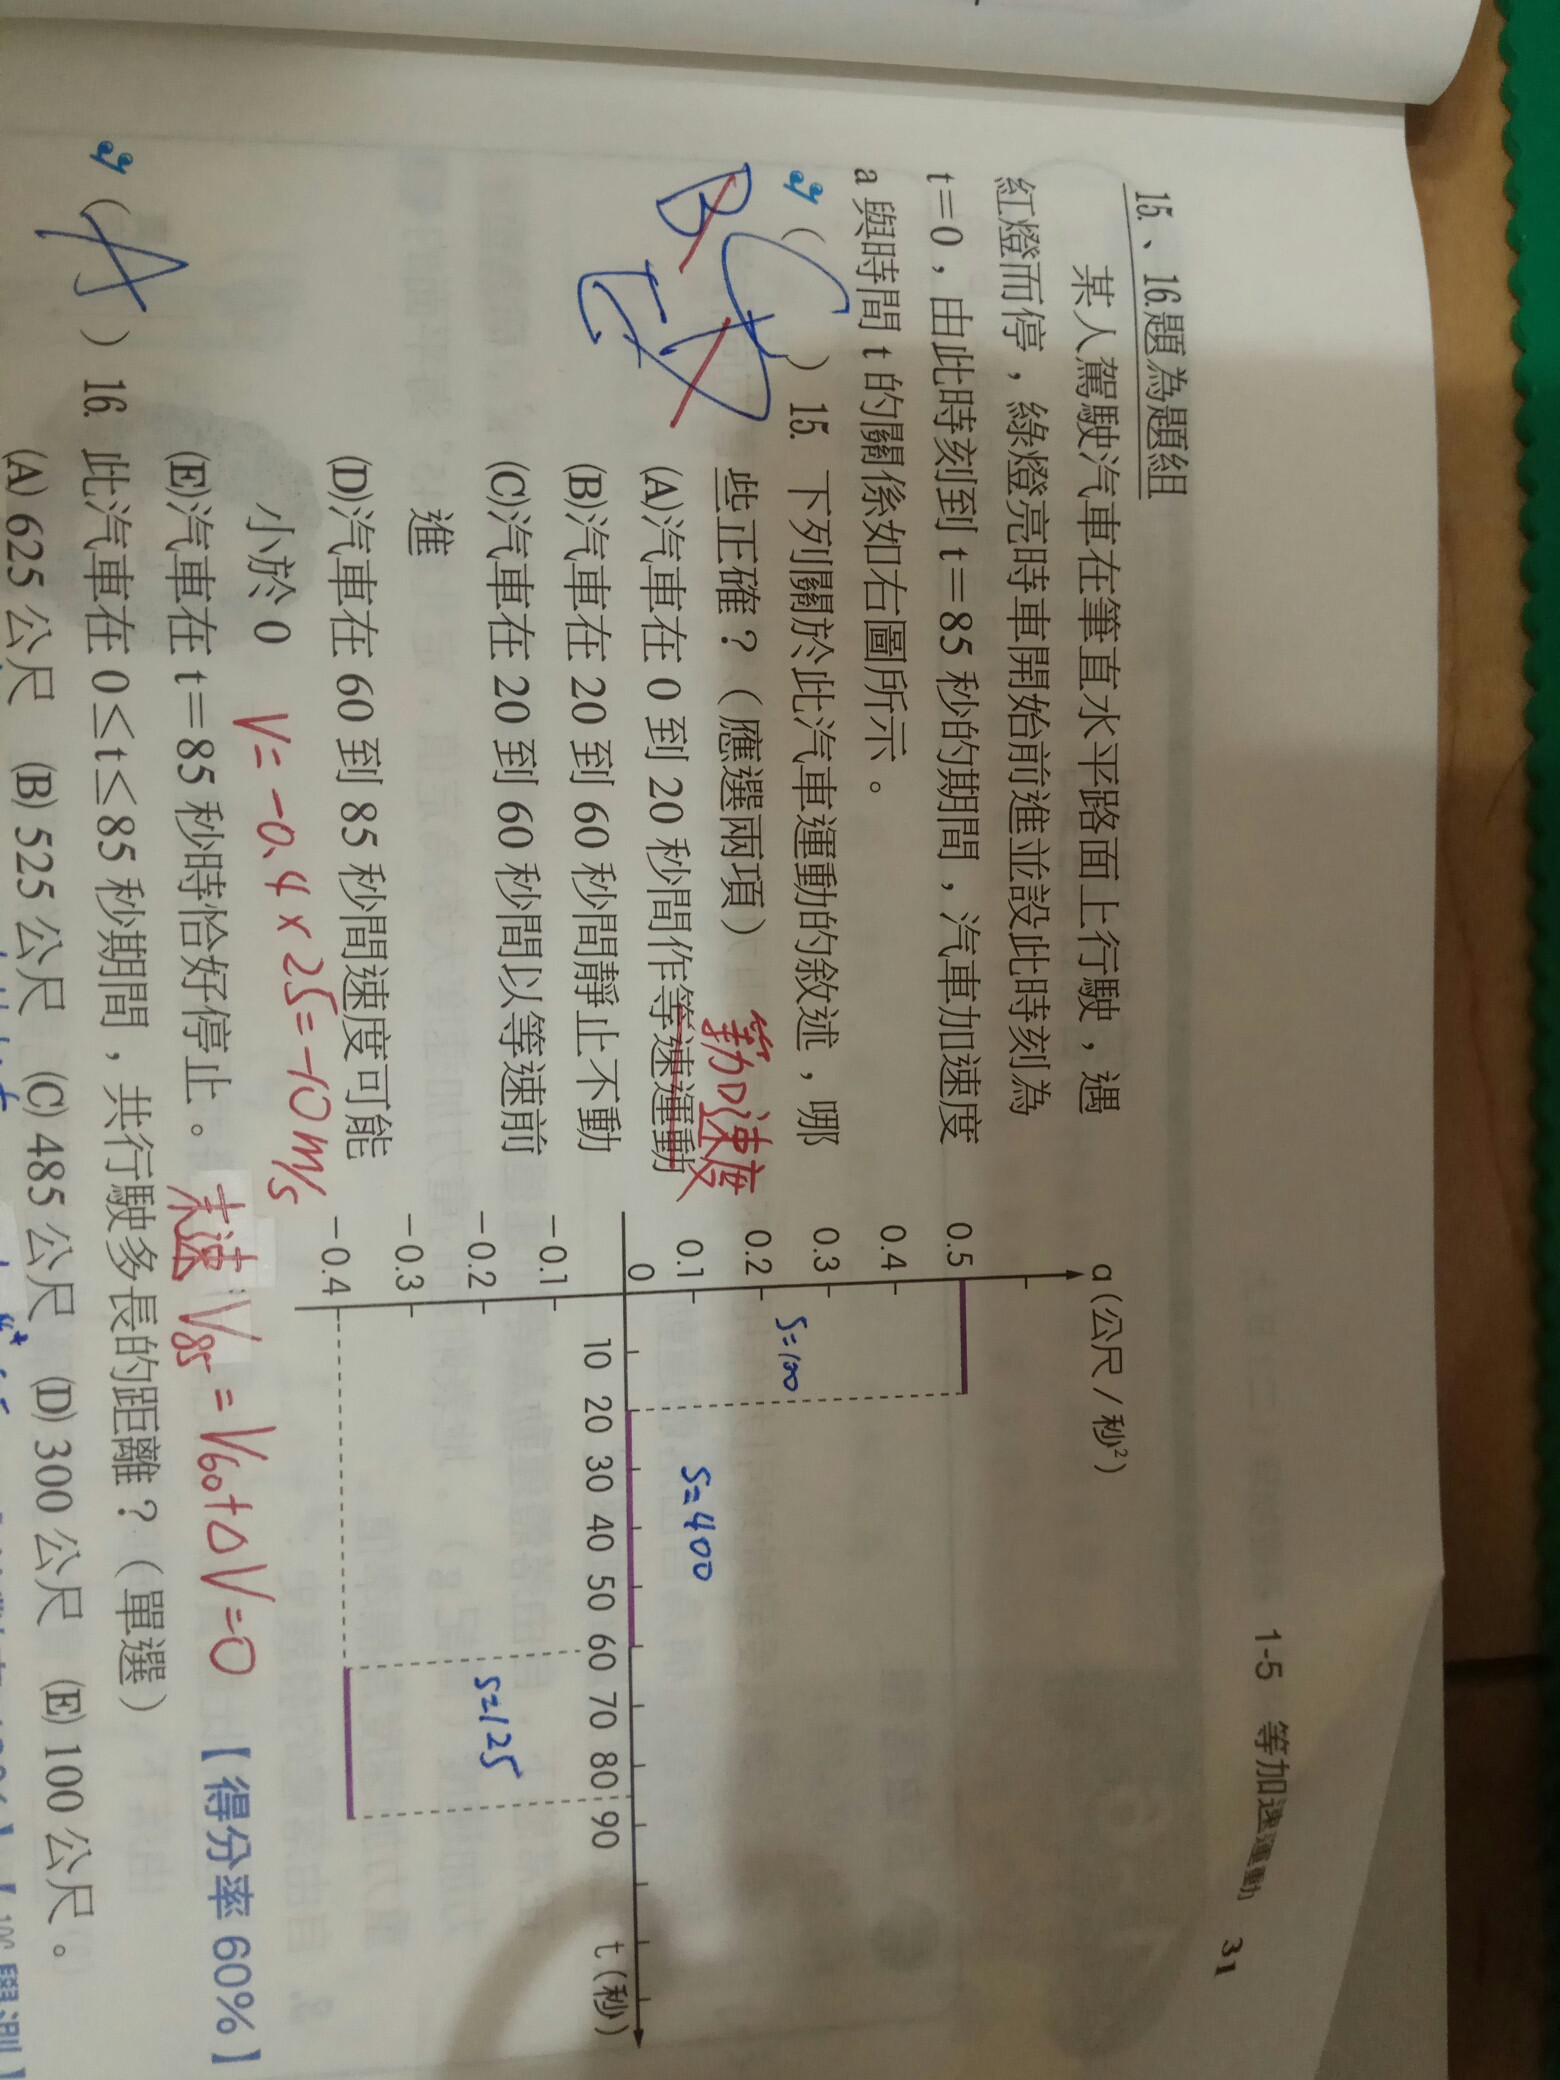 1-5 等加速運動 31
15.、16.題為題組
某人駕駛汽車在筆直水平路面上行駛，遇
紅燈而停，綠燈亮時車開始前進並設此時刻為
t＝0，由此時刻到 t＝85 秒的期間，汽車加速度
a 與時間 t 的關係如右圖所示。
( ) 15. 下列關於此汽車運動的敘述，哪
些正確？（應選兩項）
(A)汽車在 0 到 20 秒間作等速運動
等加速度
(B)汽車在 20 到 60 秒間靜止不動
(C)汽車在 20 到 60 秒間以等速前
進
(D)汽車在 60 到 85 秒間速度可能
小於 0 V=-0.4×25=-10m/s
(E)汽車在 t＝85 秒時恰好停止。 末速 V85=V60+ΔV=0 【得分率 60%】
B
C
E
a(公尺／秒²)
0.5
0.4
0.3
0.2
0.1
0
-0.1
-0.2
-0.3
-0.4
10 20 30 40 50 60 70 80 90 t(秒)
S=100
S=400
S=125
(A) 16. 此汽車在 0≤t≤85 秒期間，共行駛多長的距離？（單選）
(A) 625 公尺 (B) 525 公尺 (C) 485 公尺 (D) 300 公尺 (E) 100 公尺。